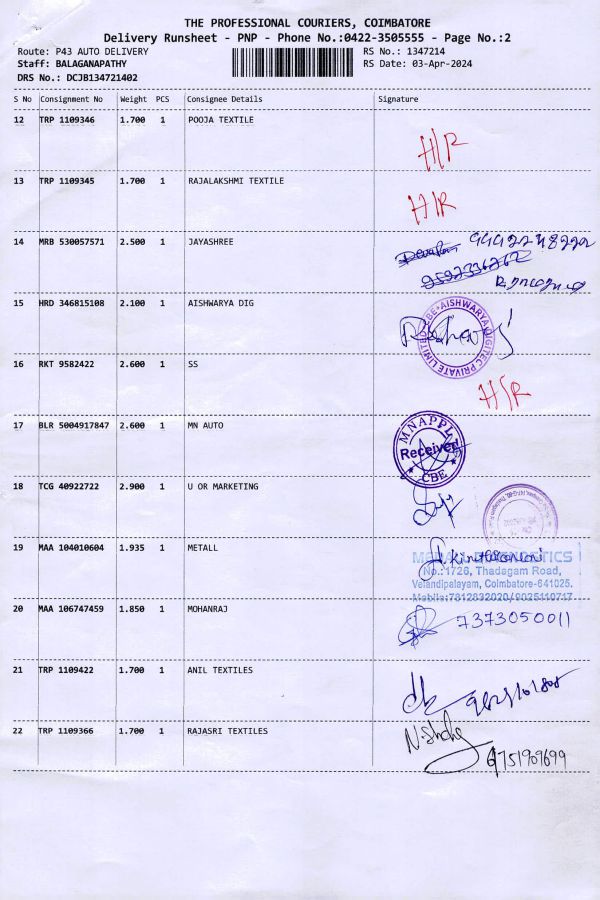 THE PROFESSIONAL COURIERS, COIMBATORE
Delivery Runsheet - PNP - Phone No.:0422-3505555 - Page No.:2
Route: P43 AUTO DELIVERY RS No.: 1347214
Staff: BALAGANAPATHY RS Date: 03-Apr-2024
DRS No.: DCJB134721402
S No Consignment No Weight PCS Consignee Details Signature
12 TRP 1109346 1.700 1 POOJA TEXTILE
H/R
13 TRP 1109345 1.700 1 RAJALAKSHMI TEXTILE
H/R
14 MRB 530057571 2.500 1 JAYASHREE
15 HRD 346815108 2.100 1 AISHWARYA DIG
CBE AISHWARYA DIGITEC PRIVATE LIMITED
16 RKT 9582422 2.600 1 SS
H/R
17 BLR 5004917847 2.600 1 MN AUTO
MNAPPL
Received
CBE
18 TCG 40922722 2.900 1 U OR MARKETING
19 MAA 104010604 1.935 1 METALL
No.:1726, Thadagam Road,
Velandipalayam, Coimbatore-641025.
Mobile:7812832020/9025110717
20 MAA 106747459 1.850 1 MOHANRAJ
7373050011
21 TRP 1109422 1.700 1 ANIL TEXTILES
22 TRP 1109366 1.700 1 RAJASRI TEXTILES
9751909699